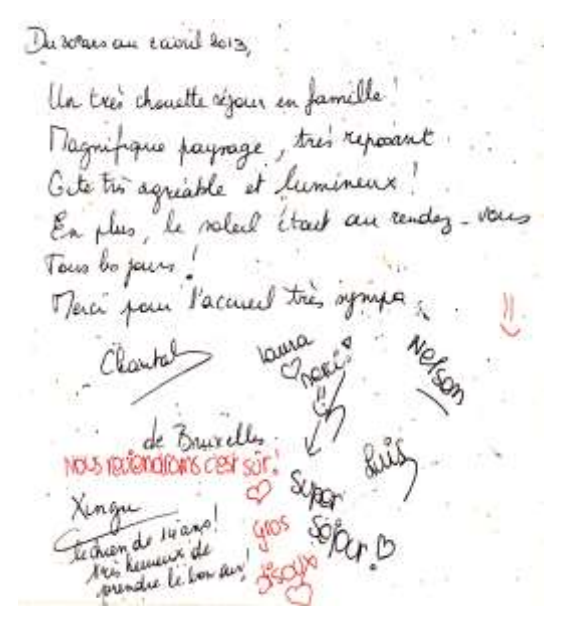 Du 30 mars au 2 avril 2013,
Un très chouette séjour en famille !
Magnifique paysage, très reposant.
Gite très agréable et lumineux !
En plus, le soleil était au rendez-vous
Tous les jours !
Merci pour l'accueil très sympa.
Chantal
Laura
merci !
Nelson
de Bruxelles.
Nous reviendrons c'est sûr !
Luis
Super
Séjour !
Xingu
le chien de 14 ans !
très heureux de
prendre le bon air !
gros
bisoux